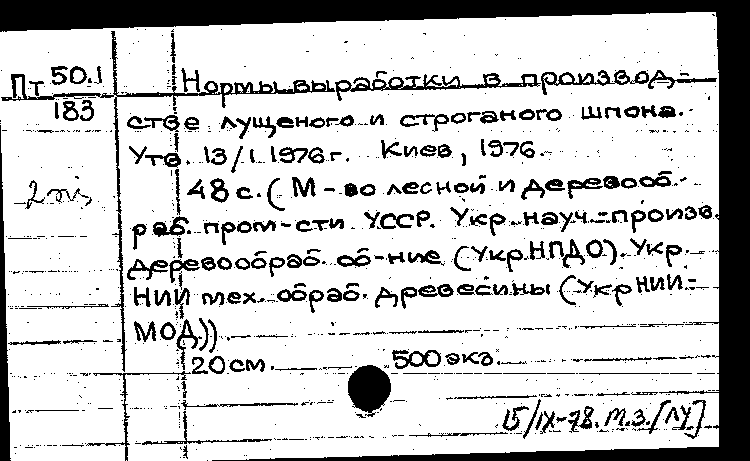 Пт 50.1
183
Нормы выработки в производ-
стве лущеного и строганого шпона.
Утв. 13/I 1976г. Киев, 1976.
48 с. (М-во лесной и деревооб-
раб. пром-сти УССР. Укр. науч.-произв.
деревообраб. об-ние (УкрНПДО). Укр.
НИИ мех. обраб. древесины (УкрНИИ-
МОД)).
20 см. 500 экз.
15/IX-78. м.з. [ЛУ]